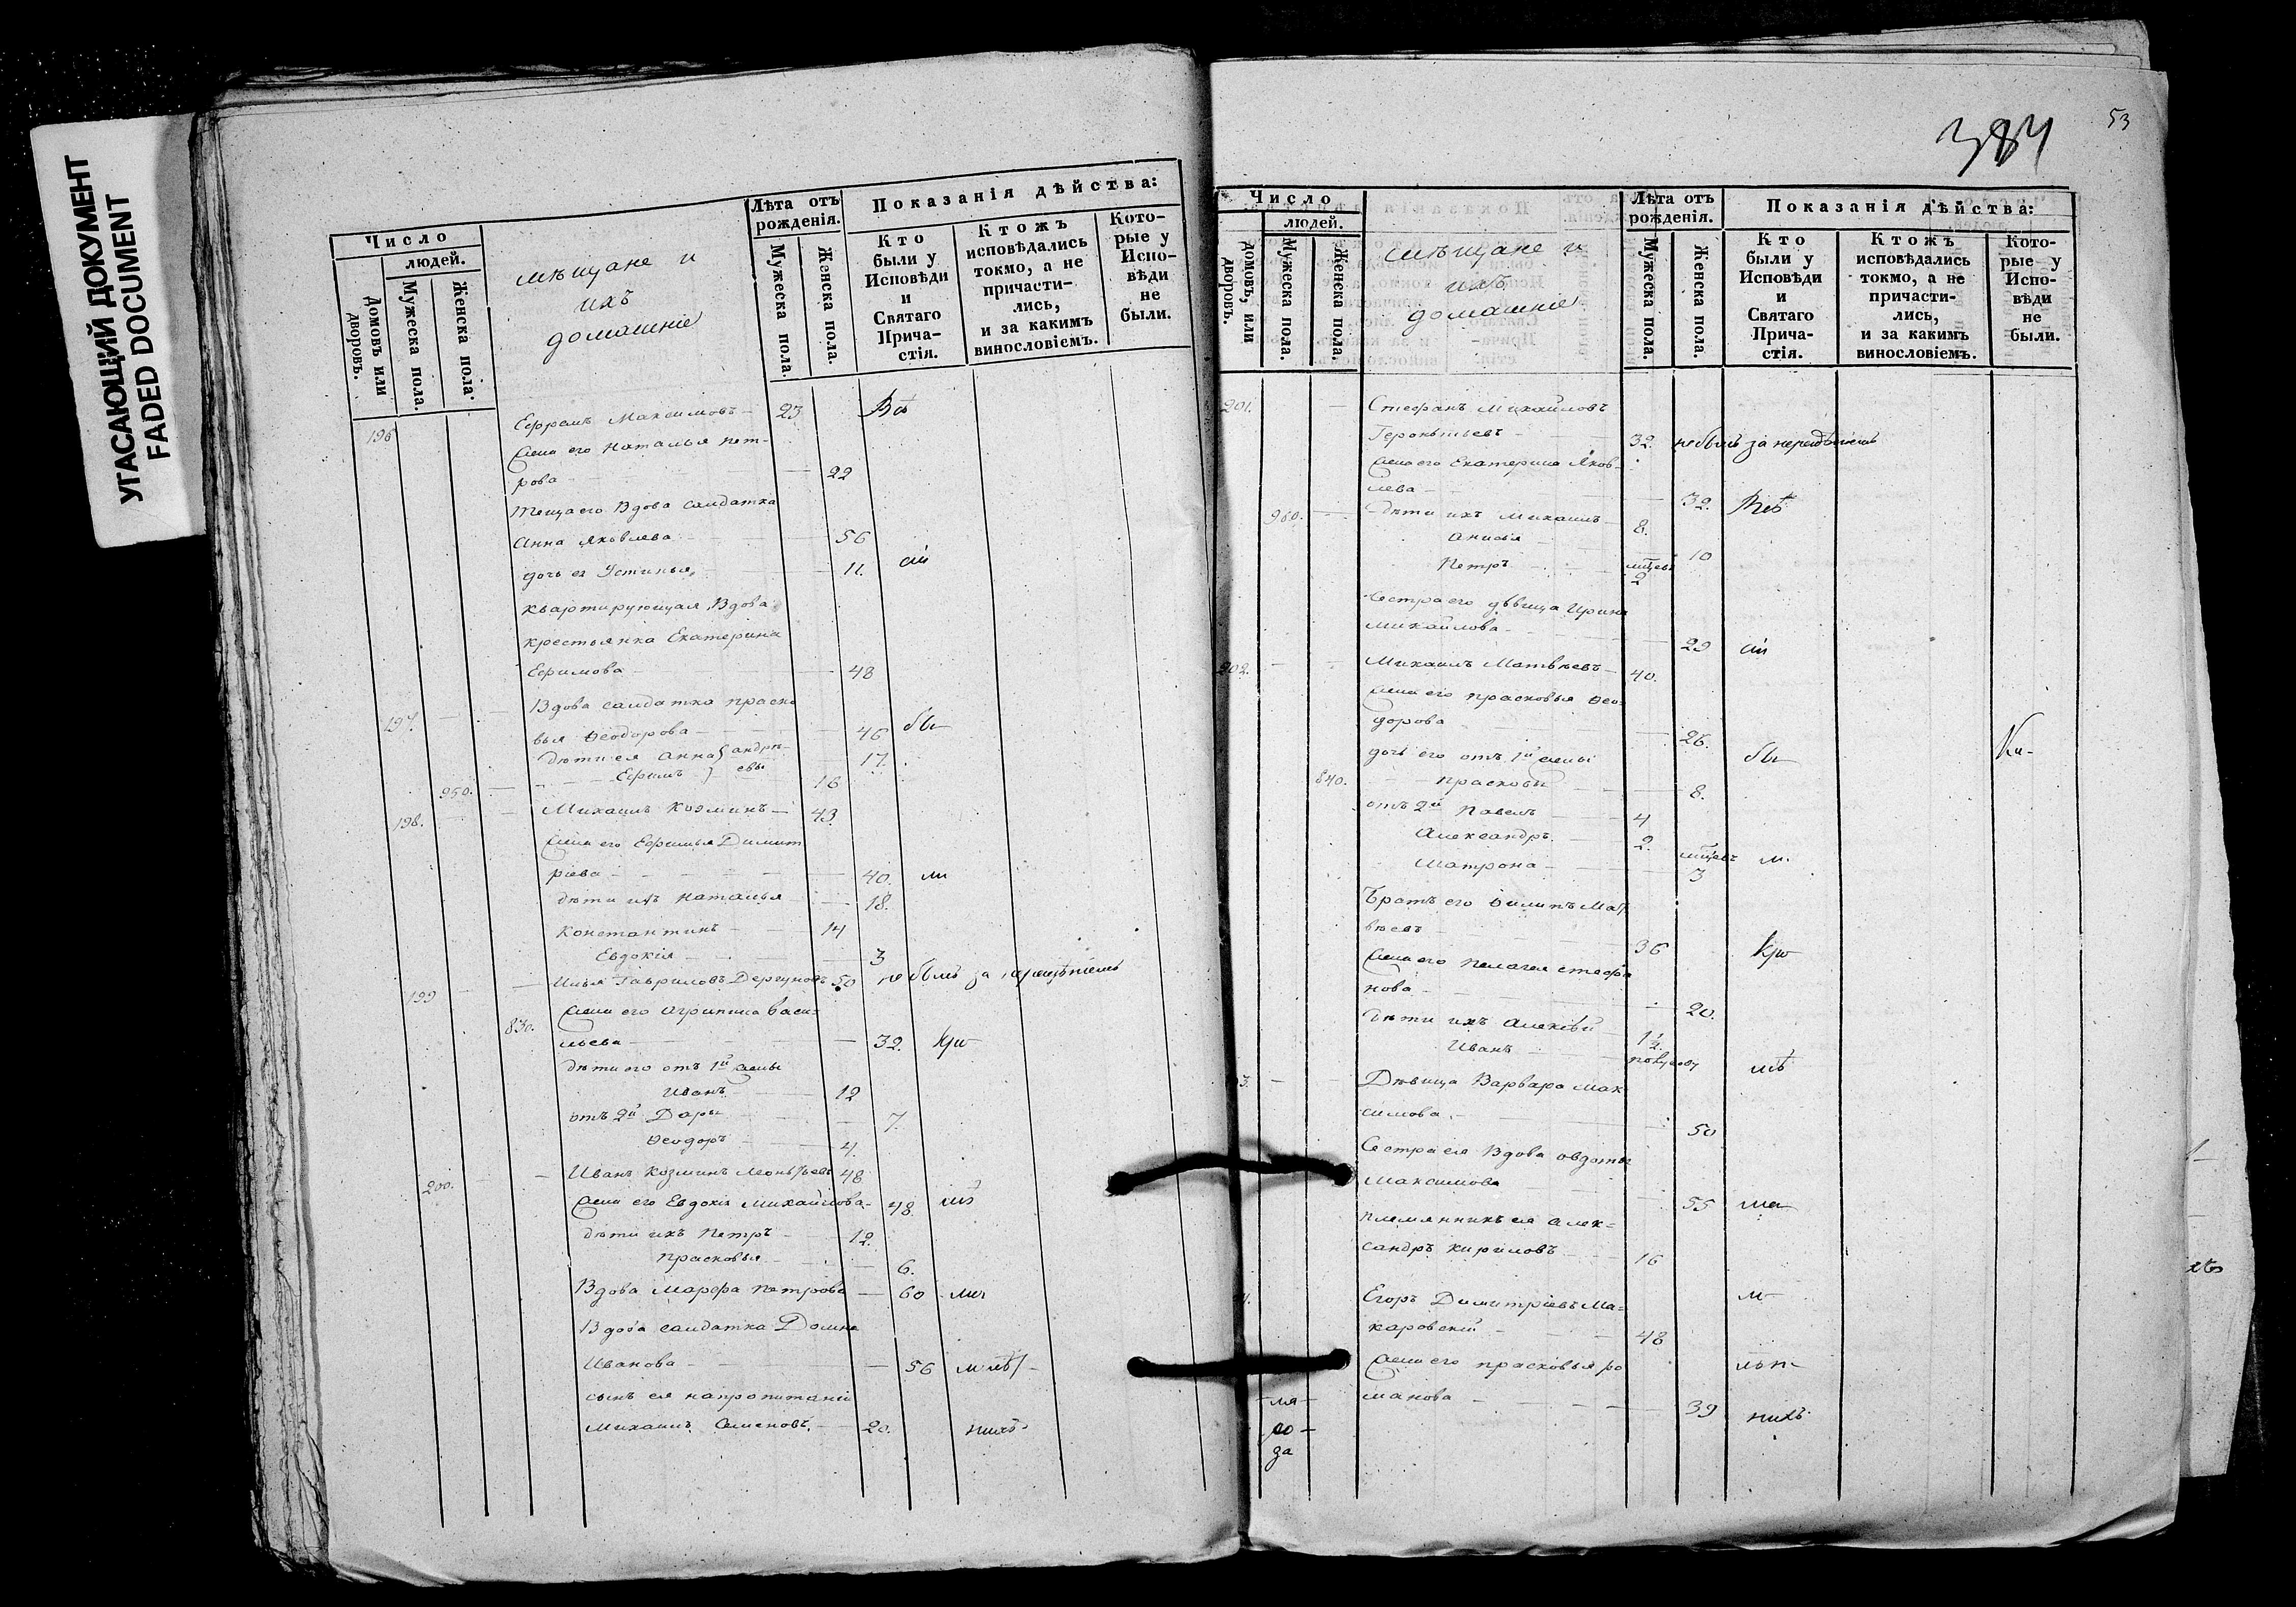 УГАСАЮЩИЙ ДОКУМЕНТ
FADED DOCUMENT
Число
людей.
Домовъ или дворовъ.
Мужеска пола.
Женска пола.
мѣщане и
ихъ
домашніе
Лѣта отъ рожденія.
Мужеска пола.
Женска пола.
Показанія дѣйства:
Кто были у Исповѣди и Святаго Прича-стія.
Ктожъ исповѣдались токмо, а не причасти-лись, и за какимъ винословіемъ.
Кото-рые у Испо-вѣди не были.
196 Ефремъ Максимовъ 23
жена его Наталья Пет-
рова 22
Теща его Вдова салдатка
Анна Яковлева 56
дочь ея Устинья 11.
квартирующая Вдова
крестьянка Екатерина
Ефимова 48
197. Вдова салдатка Праско
вья Ѳеодорова 46 бы
Дѣти ея Анна } андре- 17.
950. Ефимъ } евы 16
198. Михаилъ Козминъ 43.
жена его Ефимья Димит
ріева 40. ли
дѣти ихъ Наталья 18.
Константинъ 14
Евдокія 3
199 Илья Гавриловъ Дергуновъ 50 не былъ за
830. жена его Агрипина Васи-
льева 32.
дѣти его отъ 1й жены
Иванъ 12
отъ 2й Дарья 7.
Ѳеодоръ 4.
200. Иванъ Козминъ Леонтьевъ 48
жена его Евдокія Михайлова 48.
дѣти ихъ Петръ 12.
Прасковья 6.
Вдова Марфа Петрова 60
Вдова салдатка Домна
Иванова 56
сынъ ея на пропитаніи
Михаилъ Семеновъ 20. нихъ
384
53
Число
людей.
домовъ, или дворовъ.
Мужеска пола.
Женска пола.
мѣщане и
ихъ
домашніе
Лѣта отъ рожденія.
Мужеска пола.
Женска пола.
Показанія дѣйства:
Кто были у Исповѣди и Святаго Прича-стія.
Ктожъ исповѣдались токмо, а не причасти-лись, и за какимъ винословіемъ.
Кото-рые у Испо-вѣди не были.
201. Стефанъ Михайловъ
Геронтьевъ 32. не былъ за
жена его Екатерина Яков-
лева 32.
960. дѣти ихъ Михаилъ 8.
Анисья 10
Петръ 2
Сестра его дѣвица Ирина
Михайлова 29
202. Михаилъ Матвѣевъ 40.
жена его Прасковья Ѳео-
дорова 26.
дочь его отъ 1й жены бы
840. Прасковья 8.
отъ 2й Павелъ 4
Александръ 2.
Матрона 3
Братъ его Филипъ Мат
вѣевъ 36
жена его Пелагея Стефа
нова 20.
Дѣти ихъ Алексѣй 1½
Иванъ
3. Дѣвица Варвара Мак
симова 50
Сестра ея Вдова Овдотья
Максимова 55
племянникъ ея Алек-
сандръ Кириловъ 16
Егоръ Димитріевъ Ма-
каровскій 48
жена его Прасковья Ро
манова 39 нихъ